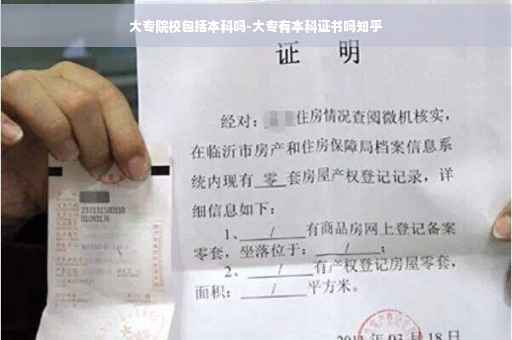 大专院校包括本科吗-大专有本科证书吗知乎
证 明
经对：住房情况查阅微机核实，
在临沂市房产和住房保障局档案信息系
统内现有 零 套房屋产权登记记录，详
细信息如下：
1、 / 有商品房网上登记备案
零套，坐落位于： / ；
2、 / 有产权登记房屋零套，
面积： / 平方米。
03月18日